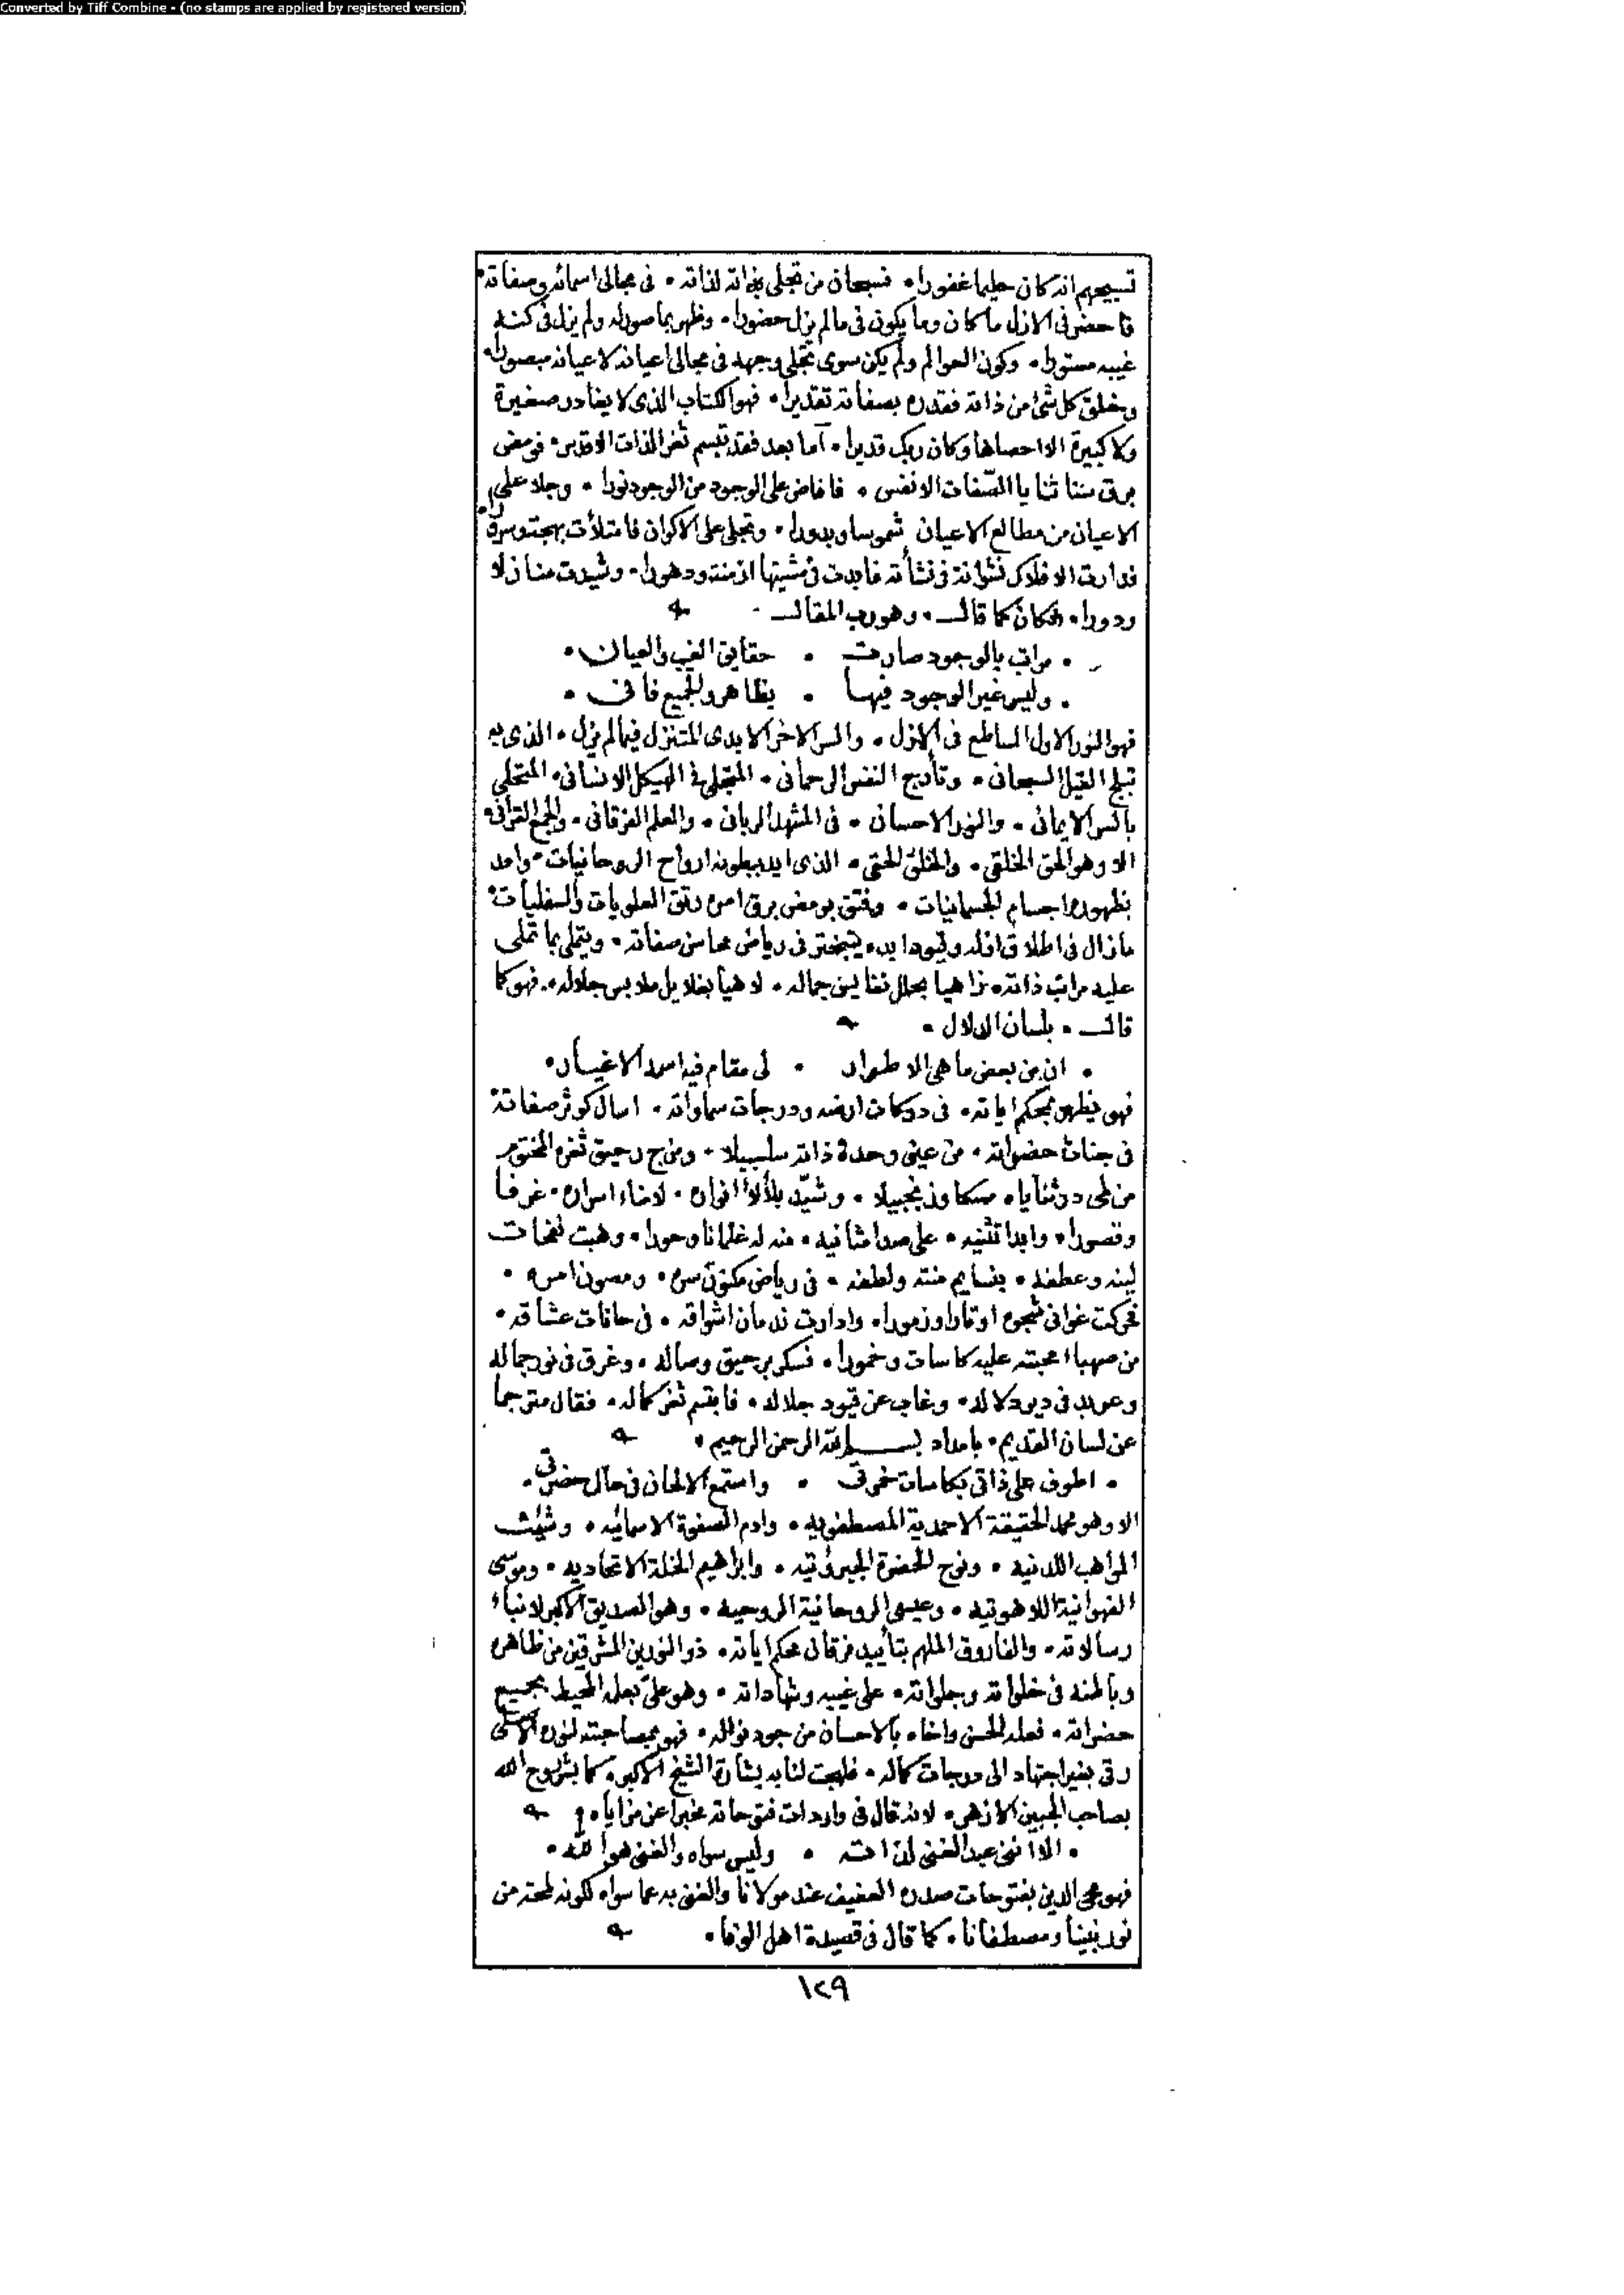 Converted by Tiff Combine - (no stamps are applied by registered version)
تسبيحهم انه كان حليما غفورا • فسبحان من تجلى بذاته لذاته • فى مجالى اسمائه وصفاته •
فاحضر فى الازل ما كان وما يكون فى ما لم يزل حضورا • وظهر بما صوره ولم يزل فى كنه
غيبه مستورا • وكون العوالم ولم يكن سوى تجلى وجهه فى مجالى اعيانه لاعيانه مبصورا •
وخلق كل شئ من ذاته فقدره بصفاته تقديرا • فهو الكتاب الذى لا يغادر صغيرة
ولا كبيرة الا احصاها وكان ربك قديرا • اما بعد فقد تبسم ثغر الذات الاقدس • فومض
برق سنا ثنايا الصفات الانفس • فافاض على الوجود من الوجود نورا • وجلا على
الاعيان من مطالع الاعيان شموسا وبدورا • وتجلى على الاكوان فامتلأت بهجة وسرورا •
فدارت الافلاك نشوانة فى نشأته فابدت فى مشيتها ازمنة ودهورا • وشيدت منازلا
ودورا • فكان كما قال • وهو رب المقال •
• مراتب بالوجود صارت • حقايق الغيب والعيان •
• وليس غير الوجود فيها • بظاهر والجميع فانى •
فهو النور الاول الساطع فى الازل • والسر الاخر الابدى المتنزل فيما لم يزل • الذى به
تبلج الفيل السبحانى • وتأرج النفس الرحمانى • المتجلى فى الهيكل الانسانى • المتحلى
بالسر الايمانى • والنور الاحسانى • فى المشهد الربانى • والعلم الفرقانى • والجمع القرآنى •
الا وهو الحق الخلقى • والخلق الحقى • الذى ايد ببطونه ارواح الروحانيات • وامد
بظهوره اجسام الجسمانيات • وفتق بومض برق امره رتق العلويات والسفليات •
ما زال فى اطلاق ازله وقيود ابده يتبختر فى رياض محاسن صفاته • ويتملى بما تملى
عليه مراتب ذاته • زاهيا بحلل نفايس جماله • لاهيا بغلايل ملابس جلاله • فهو كما
قال • بلسان الدلال •
• ان من بعض ما هى الاطوار • لى مقام فيه اسود الاغيار •
فهو يظهر بمحكم اياته • فى دركات ارضه ودرجات سماواته • اسال كوثر صفاته
فى جنات حضراته • من عين وحدة ذاته سلسبيلا • ومزج رحيق ثغره المختوم
من لمى در ثناياه مسكا وزنجبيلا • وشيد بلألاأ انواره • لامناء اسراره • غرفا
وقصورا • وابدا تثنيه • على صدا مثانيه • منه له غلمانا وحورا • وهبت نفحات
لينه وعطفه • بنسايم منته ولطفه • فى رياض مكنون سره • ومصون امره •
فحركت غوانى شجوه اوتارا وزمورا • وادارت ندمان اشواقه • فى حانات عشاقه •
من صهباء محبته عليه كاسات وخمورا • فسكر برحيق وصاله • وغرق فى نور جماله
وعربد فى ديور دلاله • وغاب عن قيود جلاله • فابتسم ثغر كماله • فقال مترجما
عن لسان القديم • بامداد بسم الله الرحمن الرحيم •
• اطوف على ذاتى بكاسات خمرتى • واستمع الالحان فى حان حضرتى •
الا وهو محمد الحقيقة الاحمدية المصطفويه • وادم الصفوة الاسمائيه • وشيث
المواهب اللدنيه • ونوح الحضرة الجبروتيه • وابراهيم الخلة الاتحاديه • وموسى
الفهوانية اللاهوتيه • وعيسى الروحانية الروحيه • وهو الصديق الاكبر لانباء
رسالاته • والفاروق الملهم بتأييد فرقان محكم اياته • ذو النورين المشرقين من ظاهره
وباطنه فى خلواته وجلواته • على غيبه وشهاداته • وهو على بعلمه المحيط بجميع
حضراته • فعله الحسن واخاه بالاحسان من جود نواله • فهو بمصاحبته لنوره الاسنى
رقى بغير اجتهاد الى درجات كماله • فلهجت لنا به بشارة الشيخ الاكبر • كما بشر روح الله
بصاحب الجبين الازهر • لانه قال فى واردات فتوحاته مخبرا عن مزاياه •
• الا اننى عبد الغنى لذاته • وليس سواه والغنى هو الله •
فهو محى الدين بفتوحات صدره العفيف عند مولانا والغنى به عما سواه لكونه لمحة من
نور نبينا ومصطفانا • كما قال فى قصيدة اهل الوفا •
١٢٩